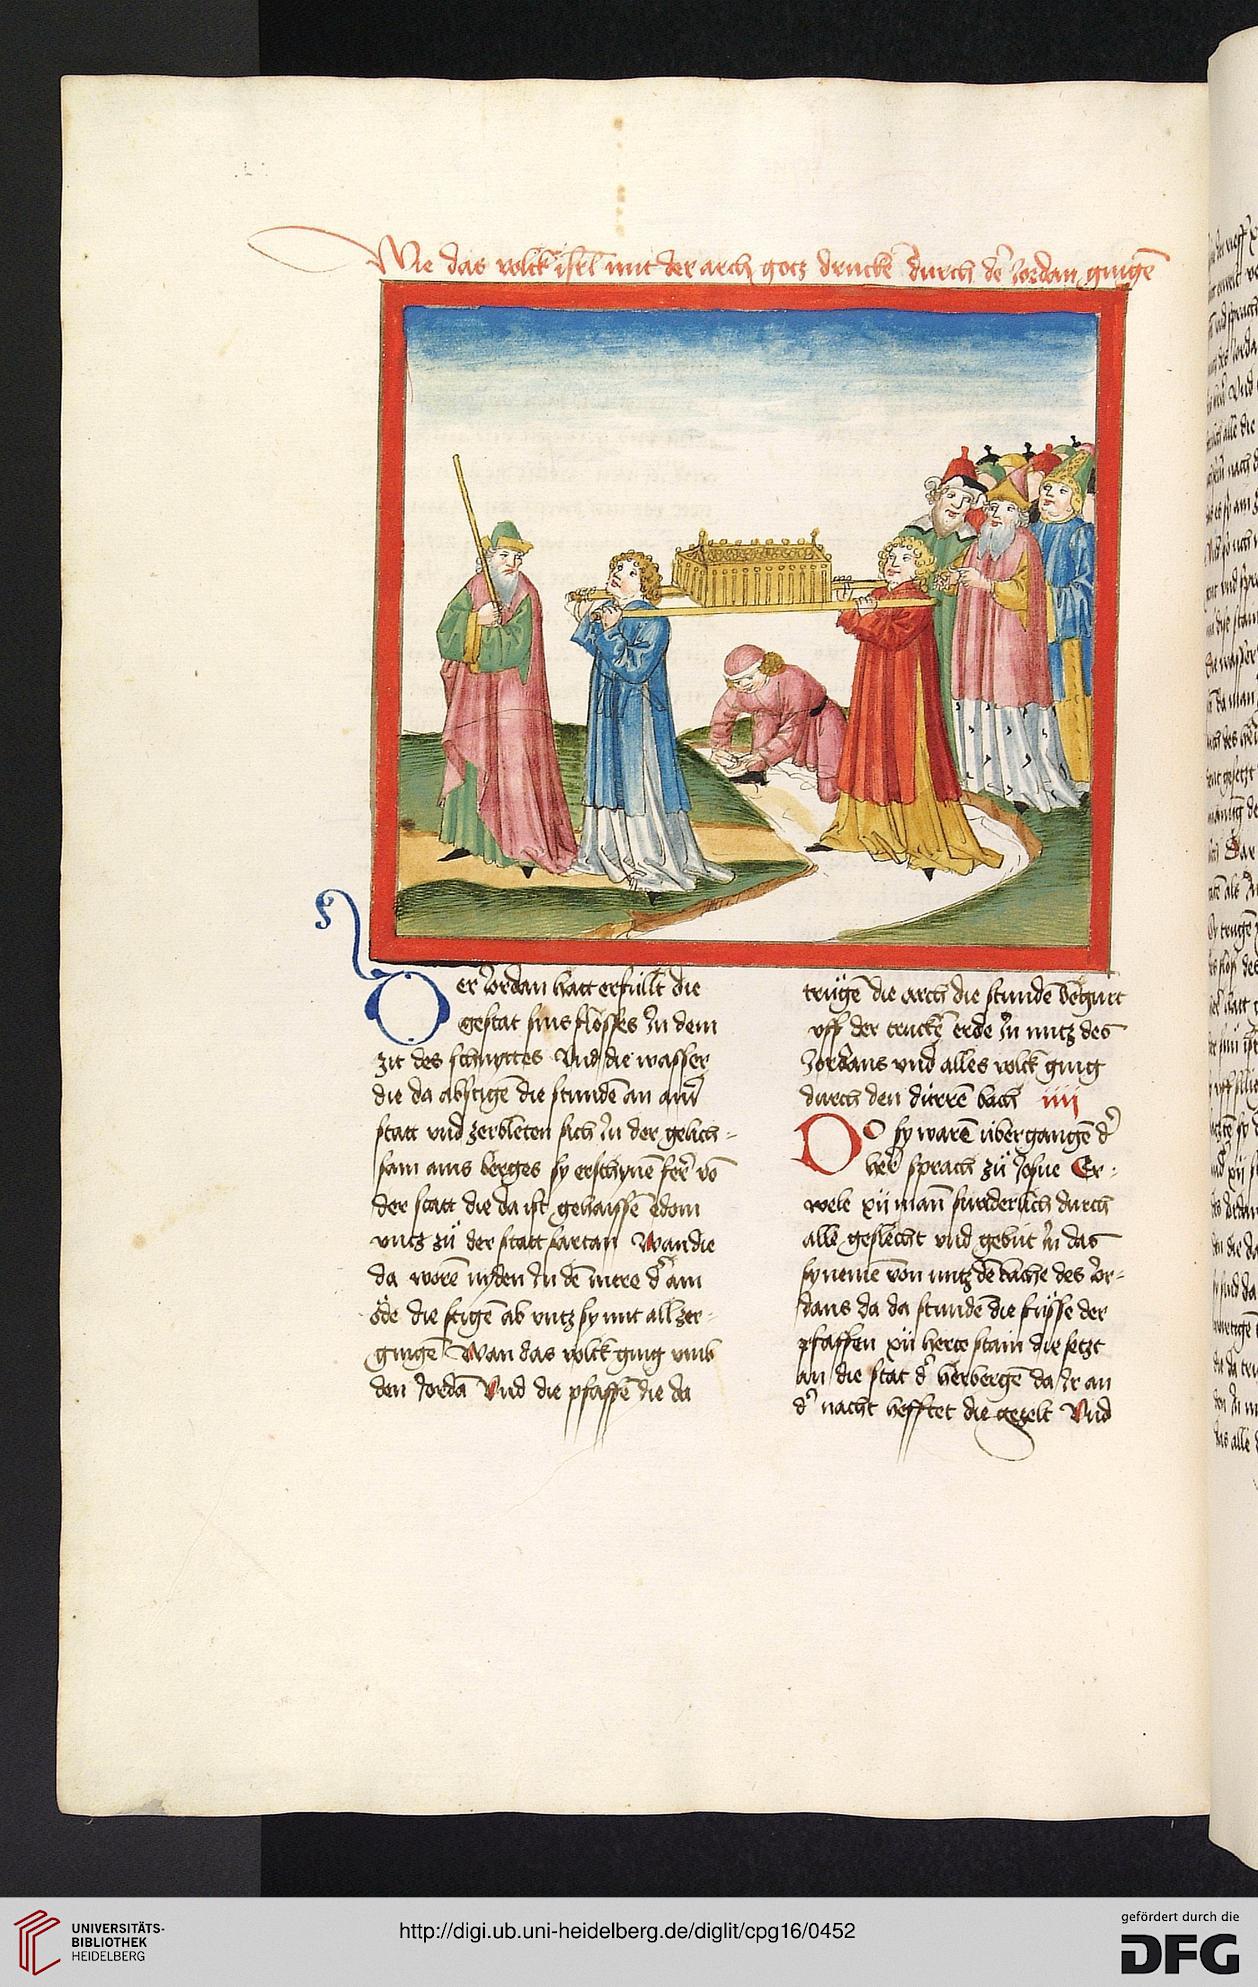 Wie das volck isrl mit der arch gotz drucke᷑ durch de᷑ Jordan ginge᷑
Der Jordan hatt erfüllt die
gestat sins flosses In dem
zit des schnyttes Vnd die wasser
die da abstige᷑ die stunde᷑ an ain᷑
statt vnd zerbleten sich In der gelich=
sam ains berges sy erschyne᷑ fer᷑ vo᷑
der statt die da ist gehaisse᷑ edom
vntz zů der statt sartan Wan die
da wore᷑ nyden In de᷑ mere d᷑ ain
öde die stige᷑ ab vntz sy mit all zer=
ginge᷑ Wan das volck ging vmb
den Jorda᷑ Vnd die pfaffe᷑ die da
trůge᷑ die arch die stunde᷑ begurt
vff der trucke᷑ erde In mitz des
Jordans vnd alles volck ging
durch den dürre᷑ bach iiij
Do sy ware᷑ übergange᷑ d᷑
her᷑ sprach zů Josue Er=
wele xij man᷑ sunderlich durch
alle geslecht vnd gebüt In das
sy neme᷑ von mitz de᷑ bache des Jor=
dans da da stunde᷑ die füsse der
pfaffen xij herte stain die setzt
an die stat d᷑ herberge᷑ da Ir an
d᷑ nacht hefftet die gezelt Vnd
UNIVERSITÄTS-
BIBLIOTHEK
HEIDELBERG
http://digi.ub.uni-heidelberg.de/diglit/cpg16/0452
gefördert durch die
DFG